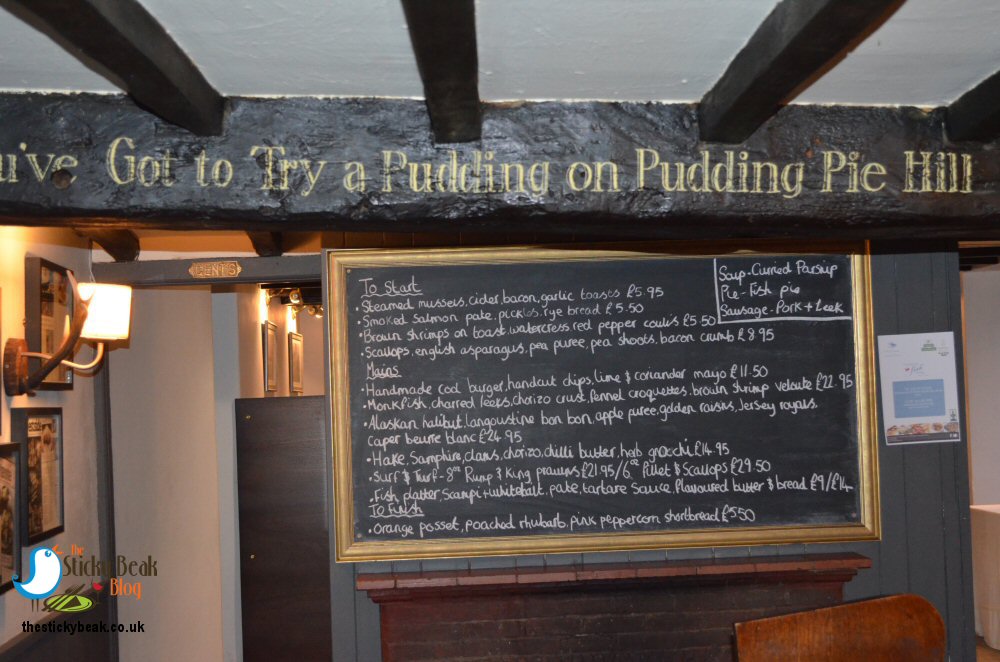 u've Got to Try a Pudding on Pudding Pie Hill
GENTS
To Start
• Steamed mussels, cider, bacon, garlic toasts £5.95
• Smoked salmon pate, pickles, rye bread £5.50
• Brown shrimps on toast, watercress, red pepper coulis £5.50
• Scallops, english asparagus, pea puree, pea shoots, bacon crumb £8.95
Mains
• Handmade cod burger, handcut chips, lime & coriander mayo £11.50
• Monkfish, charred leeks, chorizo crust, fennel croquettes, brown shrimp veloute £22.95
• Alaskan halibut, langoustine bon bon, apple puree, golden raisins, Jersey royals,
Caper beurre blanc £24.95
• Hake, Samphire, clams, chorizo, chilli butter, herb gnocchi £14.95
• Surf & Turf - 8oz Rump & King prawns £21.95/6oz Fillet & Scallops £29.50
• Fish platter, Scampi + whitebait, pate, tartare Sauce, flavoured butter & bread £9/£14
To Finish
• Orange posset, poached rhubarb, pink peppercorn shortbread £5.50
Soup - Curried Parsnip
Pie - Fish pie
Sausage - Pork + Leek
The
Sticky Beak
Blog
thestickybeak.co.uk